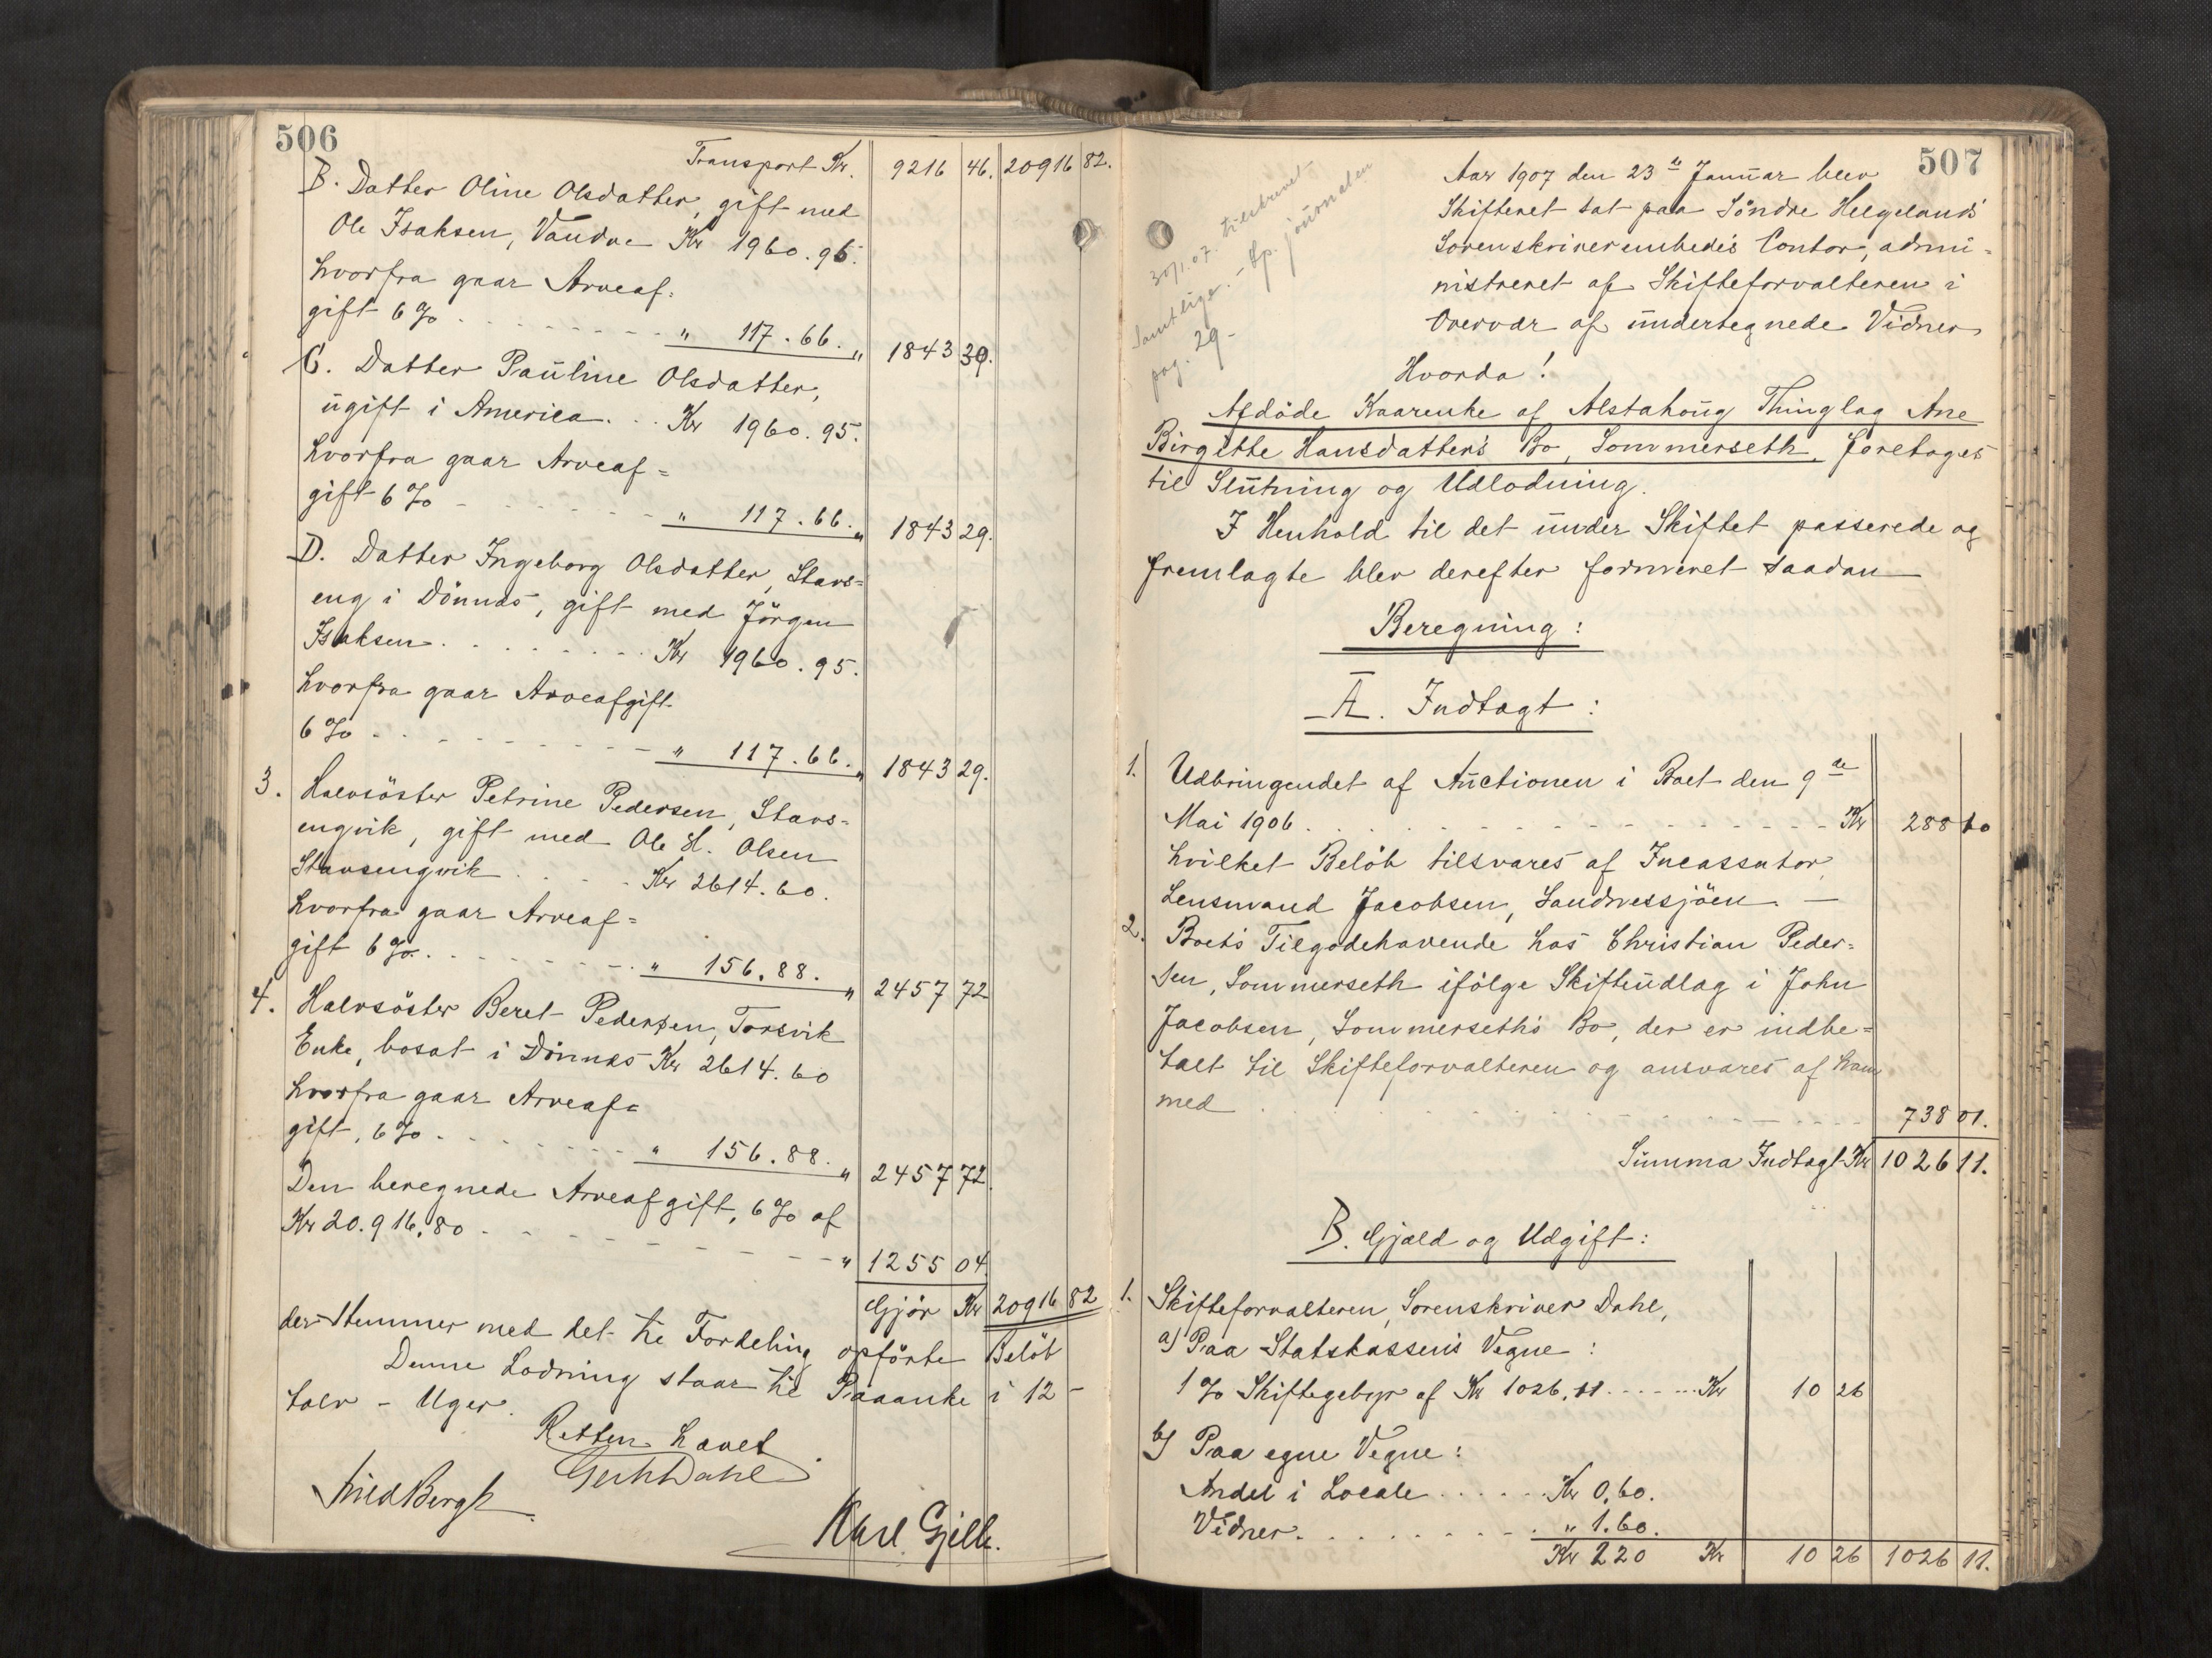 506
Transport Kr. 9216 46. 20916 82.
B. Datter Oline Olsdatter, gift med
Ole Isaksen, Vandve Kr 1960.95.
hvorfra gaar Arveaf-
gift 6 % - - - - - - - " 117.66. " 1843 39.
C. Datter Pauline Olsdatter,
ugift i America . . . Kr 1960.95.
hvorfra gaar Arveaf=
gift 6 % - - - - - - " 117.66. " 1843 29.
D. Datter Ingeborg Olsdatter, Stavs=
eng i Dönnæs, gift med Jörgen
Isaksen . . . . . . . . Kr 1960.95.
hvorfra gaar Arveafgift
6 % - - - - - - - - " 117.66. " 1843 29.
3. Halvsöster Petrine Pedersen, Stavs=
engvik, gift med Ole H. Olsen
Stavsengvik . . . . . Kr 2614.60.
hvorfra gaar Arveaf=
gift 6 %. . . . . . . . " 156.88. " 2457 72
4. Halvsöster Beret Pedersen, Torsvik
Enke, bosat i Dönnæs Kr 2614.60
hvorfra gaar Arveaf=
gift, 6 % . - - - - - - " 156.88. " 2457 72.
Den beregnede Arveafgift, 6 % af
Kr 20.916,80 - - - - - - - - - " 1255 04.
Gjör Kr 20916 82
der stemmer med det til Fordeling opförte Belöb
Denne Lodning staar til Paaanke i 12 -
tolv - Uger.
Retten hævet
Gerh Dahl
Karl Gjelle.
507
30/1.07. tilskrevet
Samtlige. - Kp. journalen
pag. 29 -
Aar 1907 den 23de Januar blev
Skifteret sat paa Söndre Helgelands
Sorenskriverembedes Contor, admi-
nistreret af Skifteforvalteren i
Overvær af undertegnede Vidner
Hvorda!
Afdöde Kaarenke af Alstahoug Thinglag Ane
Birgitte Hansdatters Bo, Sommerseth, foretages
til Slutning og Udlodning.
I Henhold til det under Skiftet passerede og
fremlagte blev derefter formeret saadan
Beregning:
A. Indtægt:
1. Udbringendet af Auctionen i Boet den 9de
Mai 1906 . . . . . - - - - - - - - Kr 288 10
hvilket Belöb tilsvares af Incassator,
Lensmand Jacobsen, Sandnessjöen. —
2. Boets Tilgodehavende hos Christian Peder-
sen, Sommerseth ifölge Skifteudlæg i John
Jacobsen, Sommerseths Bo, der er indbe=
talt til Skifteforvalteren og ansvares af ham
med . . . . . . . . . - - - - 738 01.
Summa Indtægt Kr 1026 11.
B. Gjæld og Udgift:
1. Skifteforvalteren, Sorenskriver Dahl,
a) Paa Statskassens Vegne:
1 % Skiftegebyr af Kr 1026.11 . . . - - . . . Kr 10 26
b) Paa egne Vegne:
Andel i Locale . . . . . . Kr 0.60.
Vidner . . . . . . . - . " 1.60.
Kr 2 20 Kr 10 26 1026 11.